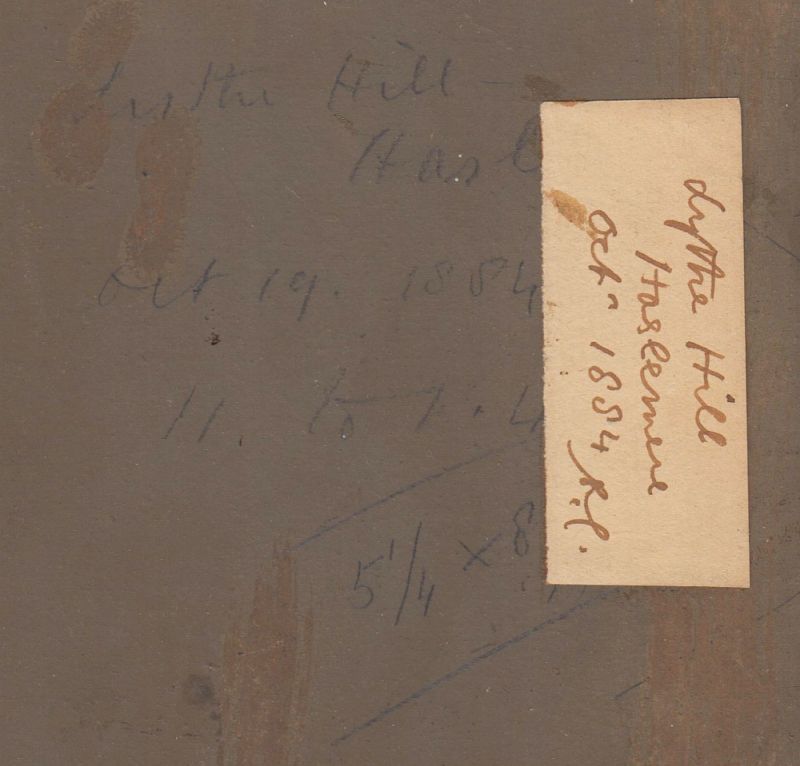 Lythe Hill -
Hasl
Oct 19. 1884
11. to 1.4
5 1/4 x 8
Lythe Hill
Haslemere
Octr 1884 R.P.